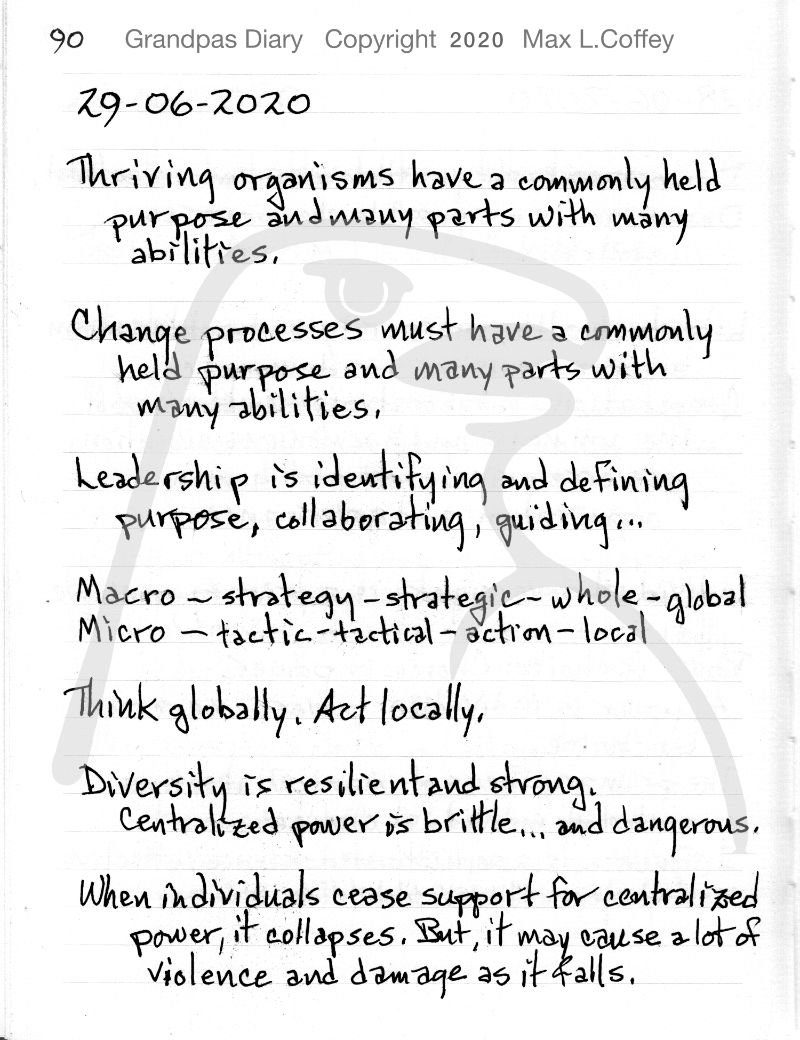 90 Grandpas Diary Copyright 2020 Max L.Coffey
29-06-2020
Thriving organisms have a commonly held
purpose and many parts with many
abilities.
Change processes must have a commonly
held purpose and many parts with
many abilities.
Leadership is identifying and defining
purpose, collaborating, guiding...
Macro - strategy - strategic - whole - global
Micro - tactic - tactical - action - local
Think globally. Act locally.
Diversity is resilient and strong.
Centralized power is brittle... and dangerous.
When individuals cease support for centralized
power, it collapses. But, it may cause a lot of
violence and damage as it falls.